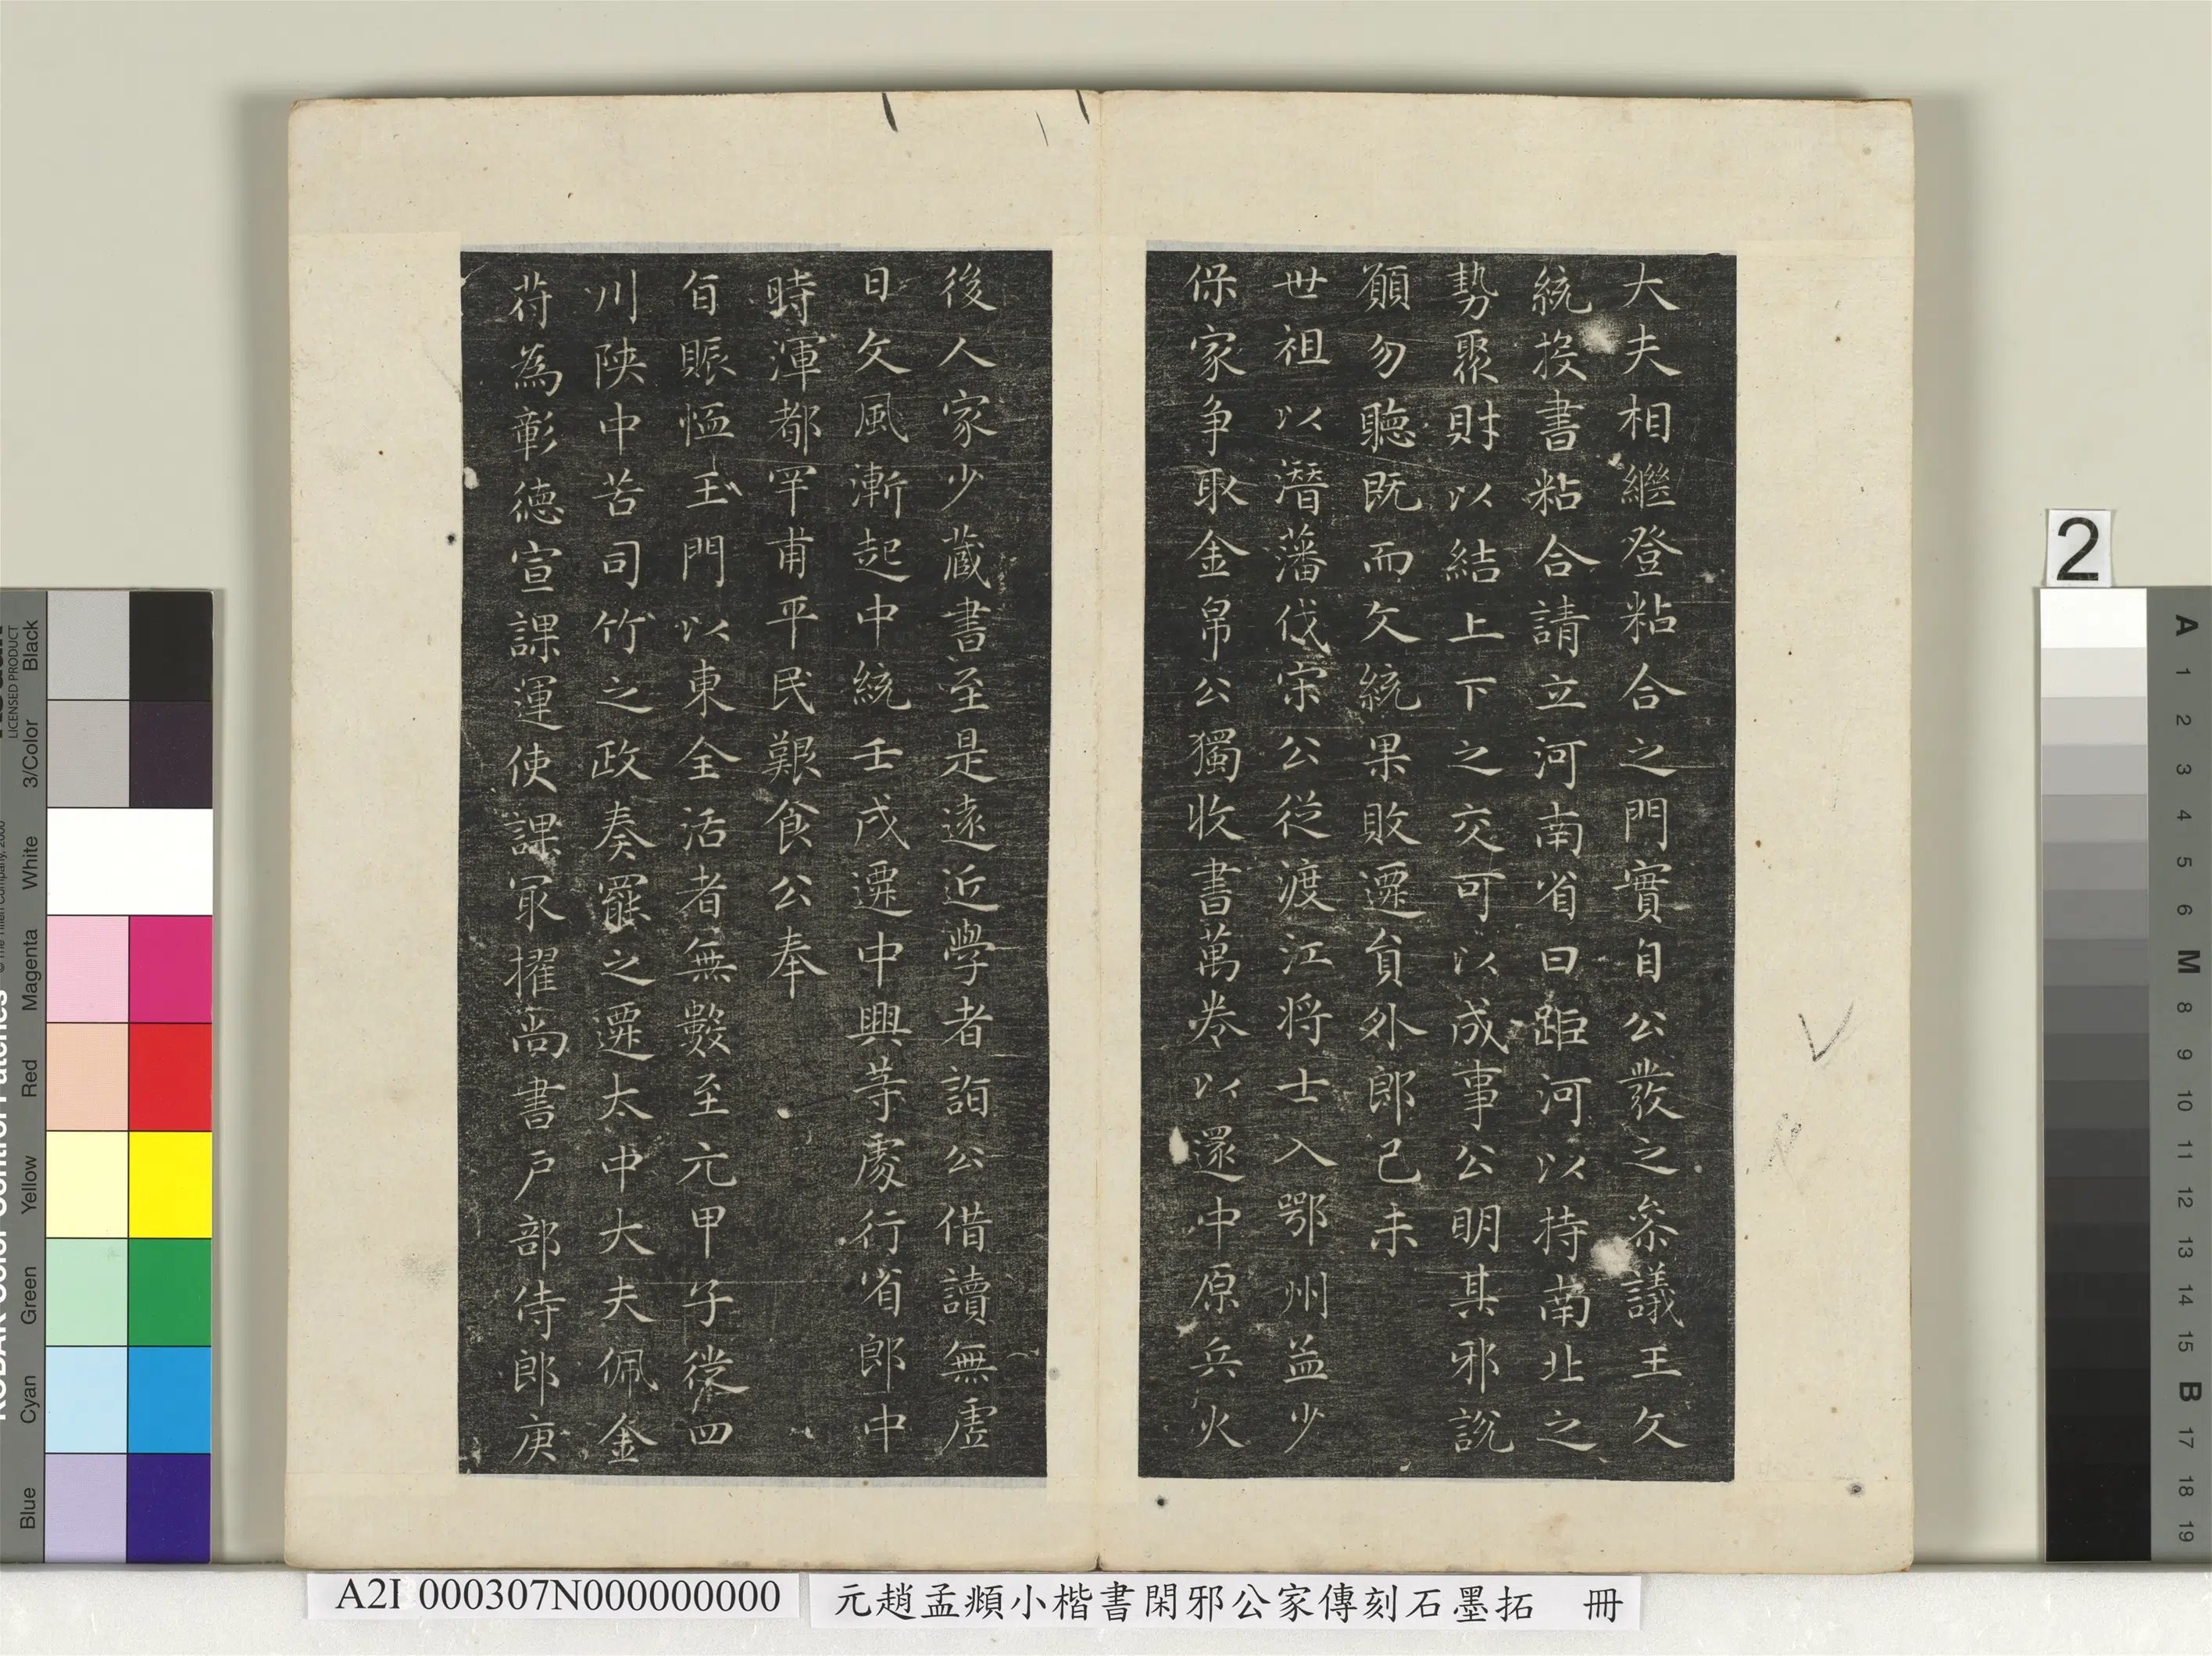 大夫相繼登粘合之門實自公發之叅議王文
統投書粘合請立河南省曰距河以持南北之
勢聚財以結上下之交可以成事公明其邪說
願勿聽既而文統果敗遷貟外郎己未
世祖以潛藩伐宋公從渡江將士入鄂州益少
保家爭取金帛公獨收書萬卷以還中原兵火
後人家少藏書至是遠近學者詣公借讀無虛
日文風漸起中統壬戌遷中興等處行省郎中
時渾都罕甫平民艱食公奉
旨賑恤玉門以東全活者無數至元甲子從四
川陝中苦司竹之政奏罷之遷太中大夫佩金
符為彰德宣課運使課冣擢尚書戶部侍郎庚
2
A2I 000307N000000000
元趙孟頫小楷書閑邪公家傳刻石墨拓 冊
A 1 2 3 4 5 6 M 8 9 10 11 12 13 14 15 B 17 18 19
Blue Cyan Green Yellow Red Magenta White 3/Color Black
LICENSED PRODUCT